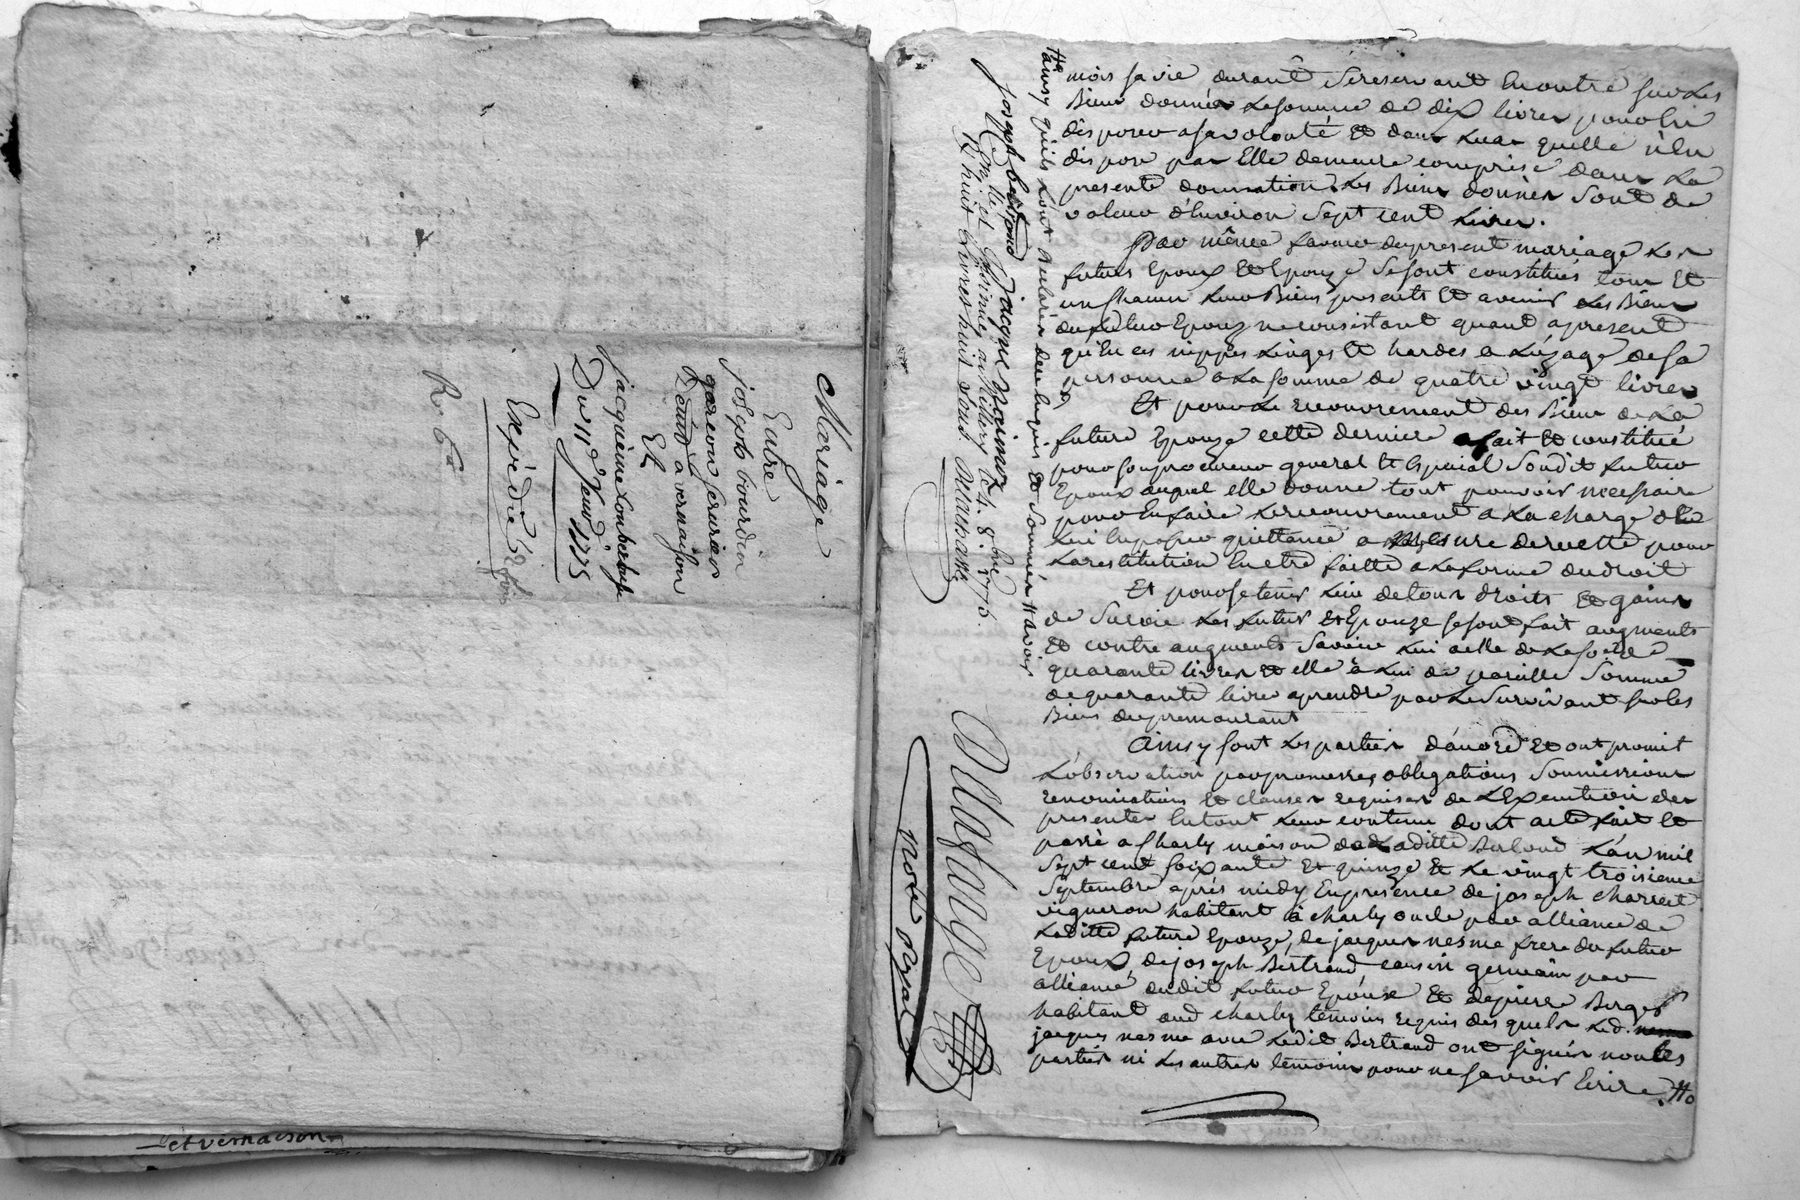 Mariage
Entre
joseph bourdin
garcon serurier
à vernaison
Et
jacquéine
Du 11e Janv 1775
Expédié
Ro
et vernaison
mois sa vie durant Se reservant En outre sur Les
Biens donnés La somme de dix livres pour En
disposer a sa volonté Et dans Le cas quelle n'En
dispose par Elle demeure comprise dans La
presente donnation. Les Biens donnés Sont de
valeur d'Environ Sept cent Livres.
Par même faveur du present mariage Les
futurs Epoux Et Epouze Se sont constitués tous Et
un chacun Leur Biens presents Et avenir Les Biens
du futur Epoux ne consistant quant apresent
qu'En ces nippes Linges Et hardes a L'uzage de sa
personne a La somme de quatre vingt livres
Et pour Le recouvrement des Biens de La
future Epouze cette derniere a fait Et constitué
pour son procureur general Et special Son dit futur
Epoux auquel elle donne tout pouvoir necessaire
pour En faire Le recouvrement a La charge
quittance a Mesure de recette pour
La restitution En etre faitte a La forme du droit
Et pour se tenir Lieu de tous droits Et gains
de Survie Les futurs Et Epouze se sont fait augments
Et contre augments Savoir Lui a elle de La so[mm]e de
quarante livres Et elle à Lui de pareille Somme
de quarante livre a prendre par Le Survivant sur les
Biens du premourant
Ainsy sont Les parties d'acord Et ont promit
L'observation par promesses, obligations Soumissions
renonciations Et clauses requises de L'Execution des
presentes En tout Leur contenu dont acte fait Et
passé a Charly maison de Laditte L'an mil
Sept cent soixante Et quinze Et Le vingt troisieme
Septembre après midy En presence de joseph charret
vigneron habitant à charly oncle par alliance de
Laditte future Epouze, de jacques nesme frere du futur
Epoux, de joseph Bertrand cousin germain par
alliance dudit futur Epoux Et de pierre Berger
habitant aud charly temoins requis des quels Led.
jacques nesme avec Ledit Bertrand ont signés non les
parties ni Les autres temoins pour ne Savoir Ecrire.
ainsy qu'ils L'ont declarés de ce Enquis Et Sommés
joseph bertrand jacque
Con.lé et à Millery le 4. 8bre 1775.
R huit Livres huit sous.
notre Royal